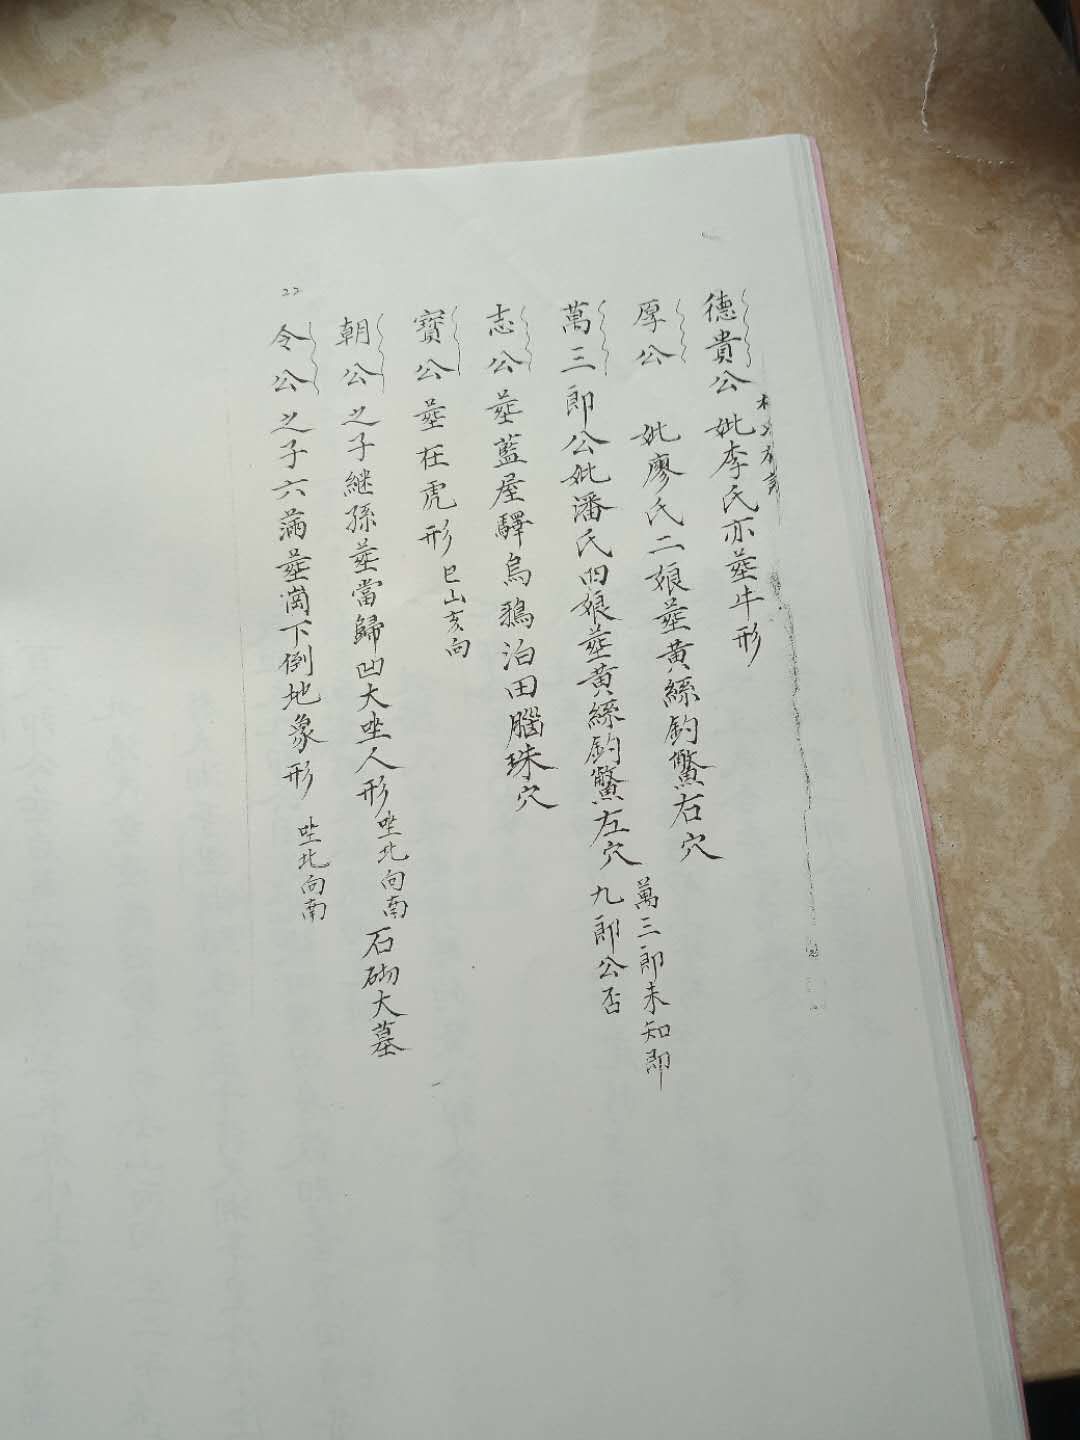 德貴公妣李氏亦塟牛形
厚公 妣廖氏二娘塟黃絲釣鱉右穴
萬三郎公妣潘氏四娘塟黃絲釣鱉左穴 萬三郎未知即
九郎公否
志公塟藍屋驛烏鴉泊田腦珠穴
寶公塟在虎形 巳山亥向
朝公之子継孫塟當歸凹大坐人形 坐北向南 石砌大墓
令公之子六滿塟崗下倒地象形 坐北向南
22